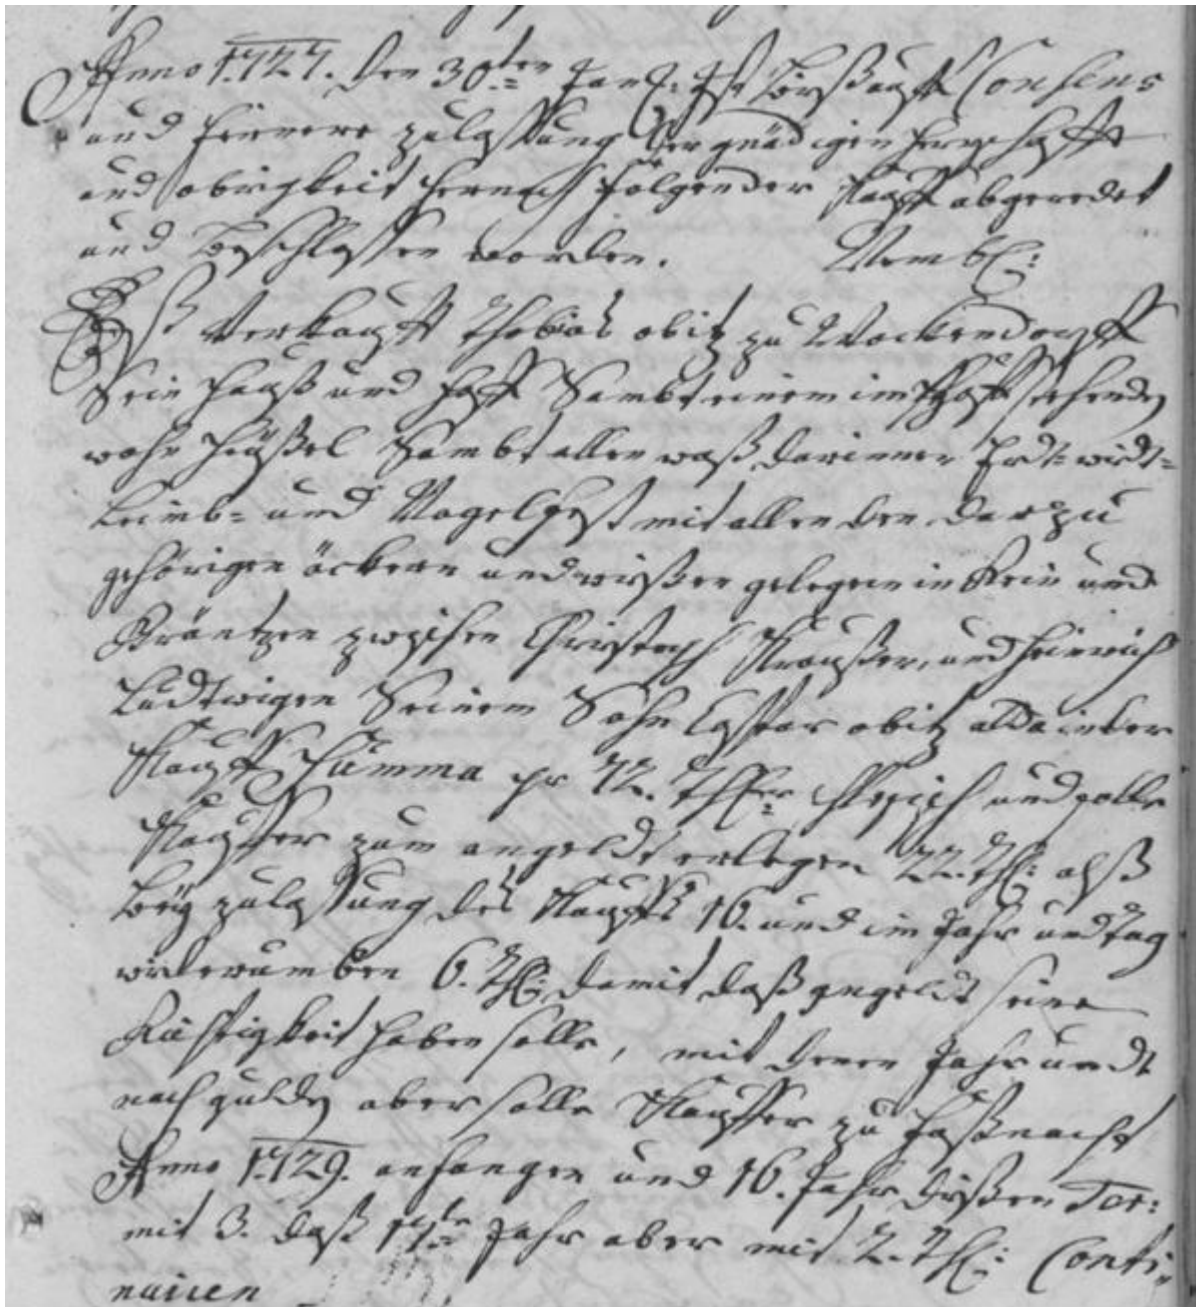 Anno 1727. den 30ten Jan: Ist Krafft Consens
und fernere zulassung der gnädigen herrschafft
und obrigkeit hernach folgender Kauff abgeredet
und beschlossen worden. Nembl:
Eß Verkaufft Thobias obitz zu Wockendorff
Sein hauß und hoff Sambt einem im hoff stehenden
wohn heüßel Sambt allen waß darinnen Erdt- widt-
Leimb- und Nagelfest mit allen den darzu
gehörigen äckern und wießen gelegen in Rein und
Gräntzen zwischen Christoph Straußer, und heinrich
Ludtwigen Seinem Sohn Caspar obitz alda in der
Kauff Summa pr 72. Thler Schlesisch und solle
Kauffer zum angeldt erlegen 22. Thl: alß
bey zulassung des Kauffs 16. und im Jahr und tag
widerumben 6. Thl: damit daß angeldt seine
Richtigkeit haben solle, mit denen Jahr undt
nach gülden aber solle Kauffer zu faßnacht
Anno 1729. anfangen und 16. Jahr dießen Ter:
mit 3. daß 17te Jahr aber mit 2. Thl: Conti-
nuiren